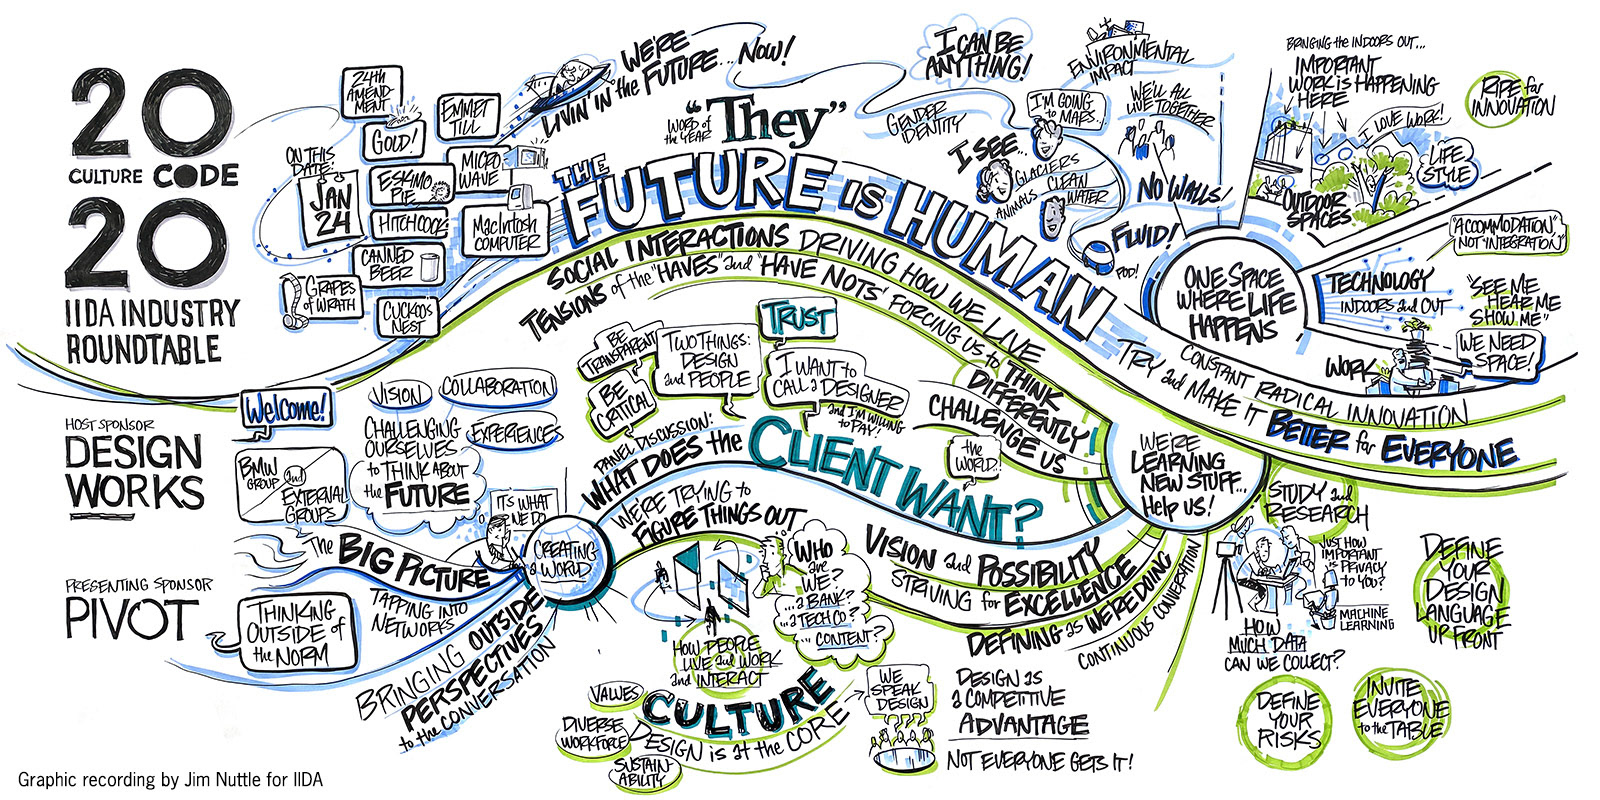 20
CULTURE CODE
20
IIDA INDUSTRY
ROUNDTABLE
HOST SPONSOR
DESIGN
WORKS
PRESENTING SPONSOR
PIVOT
Graphic recording by Jim Nuttle for IIDA
ON THIS
DATE:
JAN
24
24th
AMEND-
MENT
GOLD!
EMMET
TILL
ESKIMO
PIE
MICRO
WAVE
HITCHCOCK
MACINTOSH
COMPUTER
CANNED
BEER
GRAPES
of WRATH
CUCKOO'S
NEST
WE'RE
LIVIN' IN the FUTURE... NOW!
WORD of
the YEAR
"They"
THE
FUTURE IS HUMAN
SOCIAL INTERACTIONS DRIVING HOW WE LIVE
TENSIONS of the "HAVES" and "HAVE NOTS" FORCING US to THINK
DIFFERENTLY
CHALLENGE US
I CAN BE
ANYTHING!
GENDER
IDENTITY
I SEE...
ANIMALS
GLACIERS
CLEAN
WATER
I'M GOING
to MARS...
ENVIRONMENTAL
IMPACT
WE'LL ALL
LIVE TOGETHER
NO WALLS!
FLUID!
POD!
BRINGING the INDOORS OUT...
IMPORTANT
WORK is HAPPENING
HERE
I LOVE WORK!
LIFE
STYLE
OUTDOOR
SPACES
RIPE for
INNOVATION
ONE SPACE
WHERE LIFE
HAPPENS
"ACCOMMODATION",
NOT "INTEGRATION"
TECHNOLOGY
INDOORS and OUT
"SEE ME
HEAR ME
SHOW ME"
WE NEED
SPACE!
WORK
CONSTANT RADICAL INNOVATION
TRY and MAKE IT BETTER for EVERYONE
Welcome!
BMW
GROUP
and
EXTERNAL
GROUPS
VISION
COLLABORATION
EXPERIENCES
CHALLENGING
OURSELVES
to THINK ABOUT
the FUTURE
IT'S WHAT
WE DO
CREATING
a WORLD
The BIG PICTURE
TAPPING INTO
NETWORKS
THINKING
OUTSIDE of
the NORM
BRINGING OUTSIDE
PERSPECTIVES
to the CONVERSATION
BE
TRANSPARENT
BE
CRITICAL
TWO THINGS:
DESIGN
and PEOPLE
TRUST
I WANT to
CALL a DESIGNER
and I'M WILLING
to PAY!
PANEL DISCUSSION:
WHAT DOES the CLIENT WANT?
the
WORLD..!
WE'RE TRYING to
FIGURE THINGS OUT
WHO
are
WE?
...a BANK?
...a TECH CO?
... CONTENT?
HOW PEOPLE
LIVE and WORK
and INTERACT
CULTURE
DESIGN is at the CORE
VALUES
DIVERSE
WORKFORCE
SUSTAIN-
ABILITY
WE
SPEAK
DESIGN
DESIGN as
a COMPETITIVE
ADVANTAGE
NOT EVERYONE GETS IT!
VISION and POSSIBILITY
STRIVING for EXCELLENCE
DEFINING as WE'RE DOING
CONTINUOUS CONVERSATION
WE'RE
LEARNING
NEW STUFF...
Help us!
STUDY and
RESEARCH
JUST HOW
IMPORTANT
is PRIVACY
to YOU?
MACHINE
LEARNING
HOW
MUCH DATA
CAN WE COLLECT?
DEFINE
YOUR
DESIGN
LANGUAGE
UP FRONT
DEFINE
YOUR
RISKS
INVITE
EVERYONE
to the TABLE